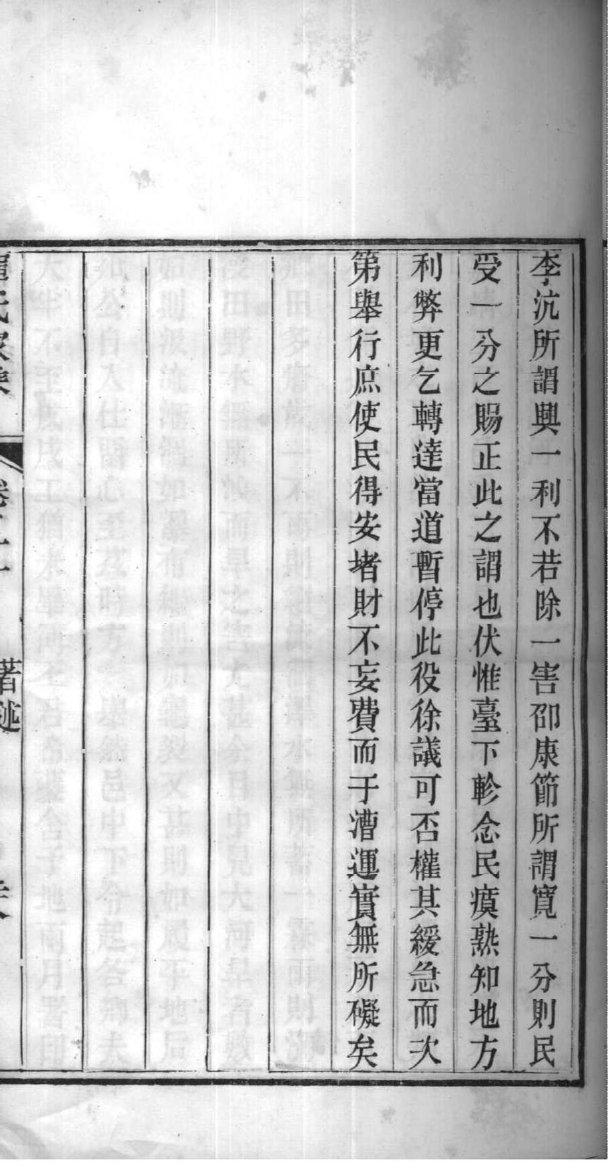 李沆所謂興一利不若除一害邵康節所謂寬一分則民
受一分之賜正此之謂也伏惟臺下軫念民瘼熟知地方
利弊更乞轉達當道暫停此役徐議可否權其緩急而次
第舉行庶使民得安堵財不妄費而于漕運實無所礙矣
氏家乘
著述